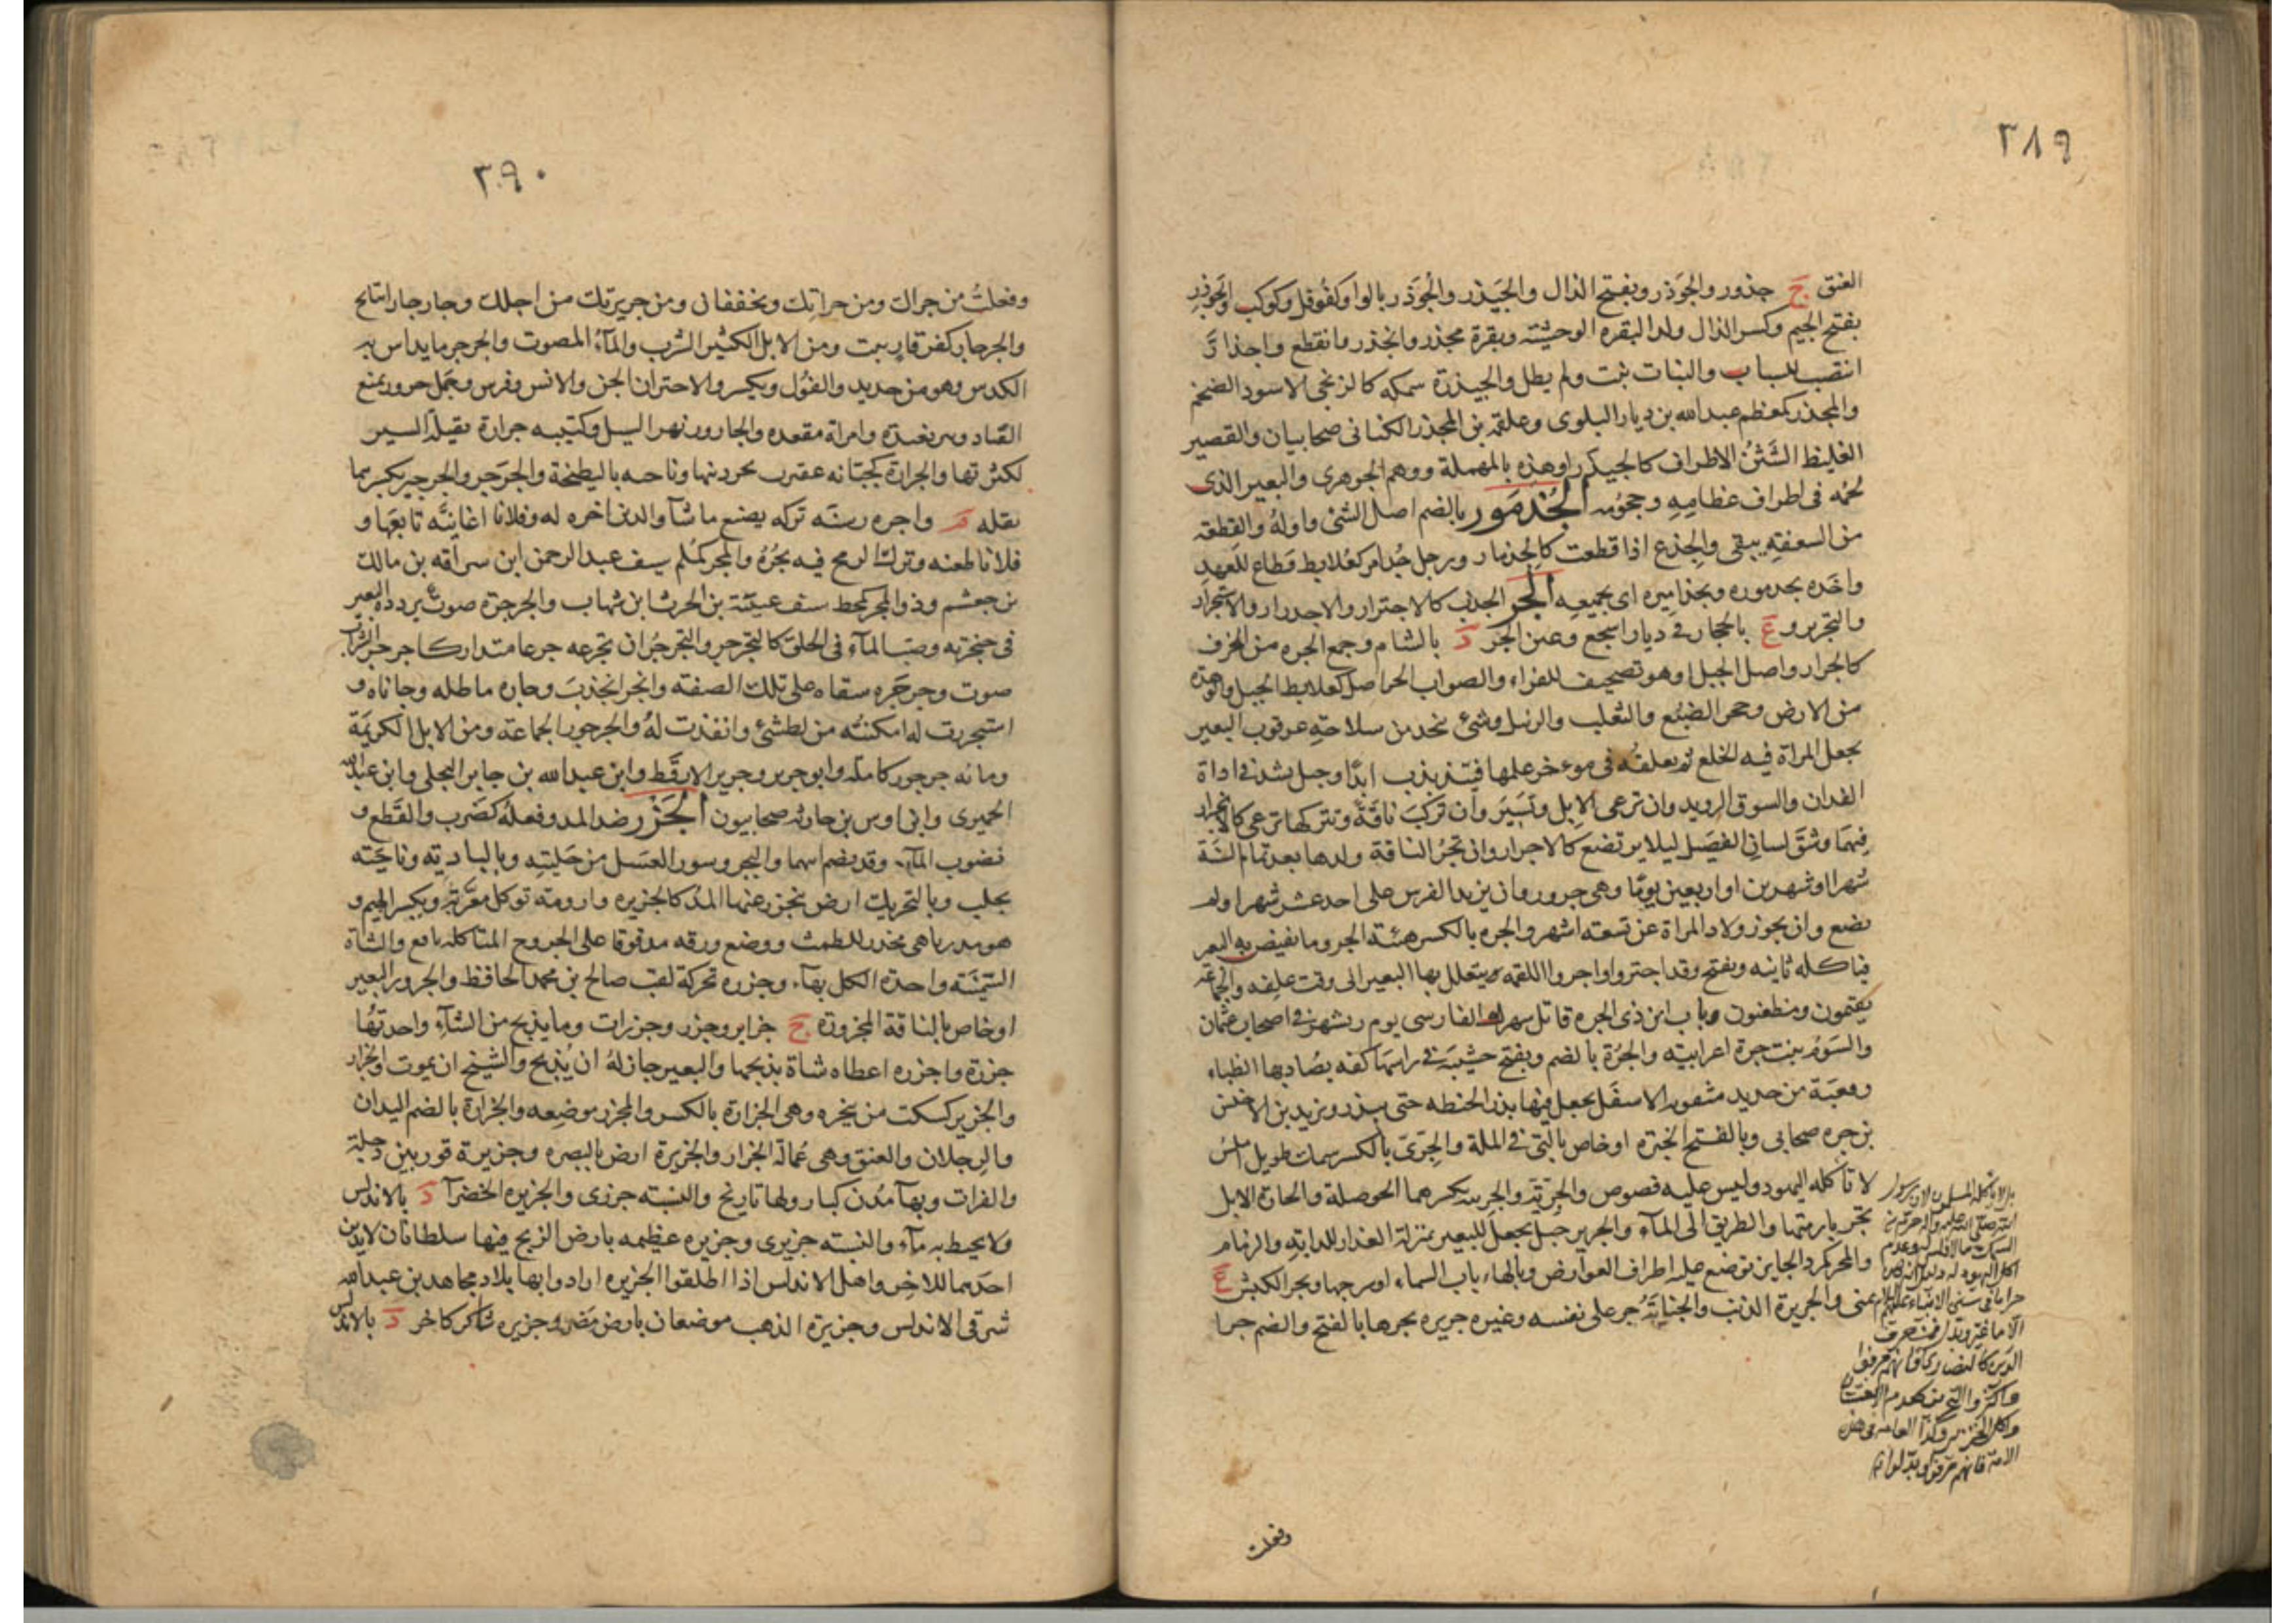 ٣٨٩
العنق ج جذور والجوذر وبفتح الذال والجيذر والجوذر بالواو كفوفل وكوكب والجوذر
بفتح الجيم وكسر الذال ولد البقره الوحشيته وبقرة مجذر وانجذر وانقطع واجذارّ
انتصب للسباب والنبات نبت ولم يطل والجيذرة سمكه كالزنجى الاسود الضخم
والمجذر كمعظم عبدالله بن ديار البلوى وعلقمه بن المجذر الكنانى صحابيان والقصير
الغليظ الشثن الاطراف كالجيذر او هذه بالمهملة ووهم الجوهرى والبعير الذى
لحمه فى اطراف عظامه وحجومه الجذمور بالضم اصل الشئ واوله والقطعه
من السعفه يبقى والجذع اذا قطعت كالجذمار ورجل جذامر كعلابط قطاع للعهد
واخذه بجدموره وبجذاميره اى بجميعه الجر الجذب كالاجترار والاجدرار والاستجرار
والتجرير وع بالحجاز فى ديار اشجع وعين الجر د بالشام وجمع الجره من الخزف
كالجرار واصل الجبل او هو تصحيف للفراء والصواب الجراصل كعلابط الجبل والوهدة
من الارض وجحر الضبع والثعلب والزبيل وشئ يتخد من سلاحة عرقوب البعير
يجعل المراة فيه الخلع ثم يعلقه فى موءخر علمها فيتذبذب ابدا وحبل يشد فى اداة
الفدان والسوق الرويد وان ترعى الابل وتسير وان تركب ناقة وتتركها ترعى كالانجرار
فيهما وشق لسان الفصيل ليلا يرتضع كالاجرار وان تجر الناقة ولدها بعد تمام السنة
شهرا او شهرين او اربعين يوما وهى جرور وان يزيد الفرس على احد عشر شهرا ولم
يضع وان يجوز ولاد المراة عن تسعه اشهر والجره بالكسر هيئة الجر وما يفيض به البعر
فياكله ثانيه ويفتح وقد اجتر واواجروا اللقمه يتعلل بها البعير الى وقت علفه والجماعة
يقيمون ويظعنون وباب ابن ذى الجره قاتل سهرك الفارسى يوم ريشهر فى اصحاب عثمان
والسوم بنت جرة اعرابية والجرة بالضم ويفتح خشيبة فى راسها كفه يصاد بها الظباء
وقعبة من حديد مثقور الاسفل يجعل فيها بذر الحنطه حتى يبذر ويزيد بن الاخنس
بن جره صحابى وبالفتح الخبزه او خاص بالتى فى الملة والجرى بالكسر سمك طويل املس
لا تاكله اليهود وليس عليه فصوص والجرية والجريه بكسرهما الحوصلة والجارة الابل
تجر بازمتها والطريق الى المآء والجرير حبل يجعل للبعير بمنزلة العذار للدابة والزمام
والمجر كمرد الجايز توضع عليه اطراف العوارض وبالهاء باب السماء او سرجها وبجر الكبش ع
بمنى والجريرة الذنب والجناية جر على نفسه وغيره جريره يجرها بالفتح والضم جرا
بل لا ياكله المسلمون لان رسول
الله صلى الله عليه واله حرم من
السمك ما لا فلس له وعدم
اكل اليهود له دليل انه كان
حراما فى سنن الانبياء عليهم السلام
الا ما غيّر وبدّل
كالنصارى فانهم حرفوا
واكل الخنزير وكذا العامه فى هذه
الامة فانهم حرفوا وبدلوا
وفعلت
٣٩٠
وفعلت من جراك ومن جراتك ويخففان ومن جريرتك من اجلك وحار جار اتباع
والجرجار كقرقار نبت ومن الابل الكثير الشرب والمآء المصوت والجرجر ما يداس به
الكدس وهو من حديد والفول ويكسر والاجتران الجن والانس وفرس وجمل جرور يمنع
القياد وبير بعيدة وامراة مقعده والجارور نهر السيل وكتيبه جرارة ثقيلة السير
لكثرتها والجرارة كجبانه عقرب تجر ذنبها وناحيه بالبطيحة والجرجر والجرجير بكسرهما
بقله م واجره رسنه تركه يصنع ما شآ والدين اخره له وفلانا اغانيّه تابعها و
فلانا طعنه وترك الرمح فيه يجره والمجر كملم سيف عبد الرحمن ابن سراقه بن مالك
بن جعشم وذو المجر كمحط سيف عيينة بن الحرث ابن شهاب والجرجرة صوت يردده البعير
فى حنجرته وصب المآء فى الحلق كالتجرجر والتجرجر ان تجرعه جرعا متداركا جرجر الشراب
صوت وجرجره سقاه على تلك الصفته وانجر انجذب وجاره ماطله وجاناه و
استجررت له امكنته من نفسى وانقذت له والجرجور الجماعة ومن الابل الكريمة
ومائه جرجور كاملة وابو جرير وجرير الارقط وابن عبد الله بن جابر البجلى وابن عبدالله
الحميرى وابن اوس بن حارثه صحابيون الجزر ضد المد وفعله كضرب والقطع و
نضوب المآء وقد يضم اتيهما والبحر وسور العسل من خليته وبالبادية وناحيته
بحلب وبالتحريك ارض ينجزر عنها المد كالجزيره وارومه توكل معربة ويكسر الجيم و
هو مدر باهى مخدر للطمث ووضع ورقه مدقوقا على الجروح المتاكله نافع والشاة
السمينة واحدة الكل بهاء وجزره محركة لقب صالح بن محمد الحافظ والجزور البعير
او خاص بالناقة المجزورة ج جزاير وجزر وجزرات وما يذبح من الشآء واحدتها
جزرة واجزره اعطاه شاة يذبحها والبعير جاز له ان يذبح والشيخ ان يموت والجزار
والجزير كسكت من ينحره وهى الجزارة بالكسر والمجزر موضعه والجزارة بالضم اليدان
والرجلان والعنق وهى عمالة الجزار والجزيرة ارض بالبصره وجزيرة قور بين دجلة
والفرات وبهآ مدن كبار ولها تاريخ والنسبه جزرى والجزيره الخضرآ د بالاندلس
ولا يحيط به مآء والنسبه جزيرى وجزيره عظيمه بارض الزنج فيها سلطانان لا يدين
احدهما للاخر واهل الاندلس اذا اطلقوا الجزيره ارادوا بها بلاد مجاهد بن عبد الله
شرقى الاندلس وجزيرة الذهب موضعان بارض مضر وجزيره شاكر كاخر د بالاندلس